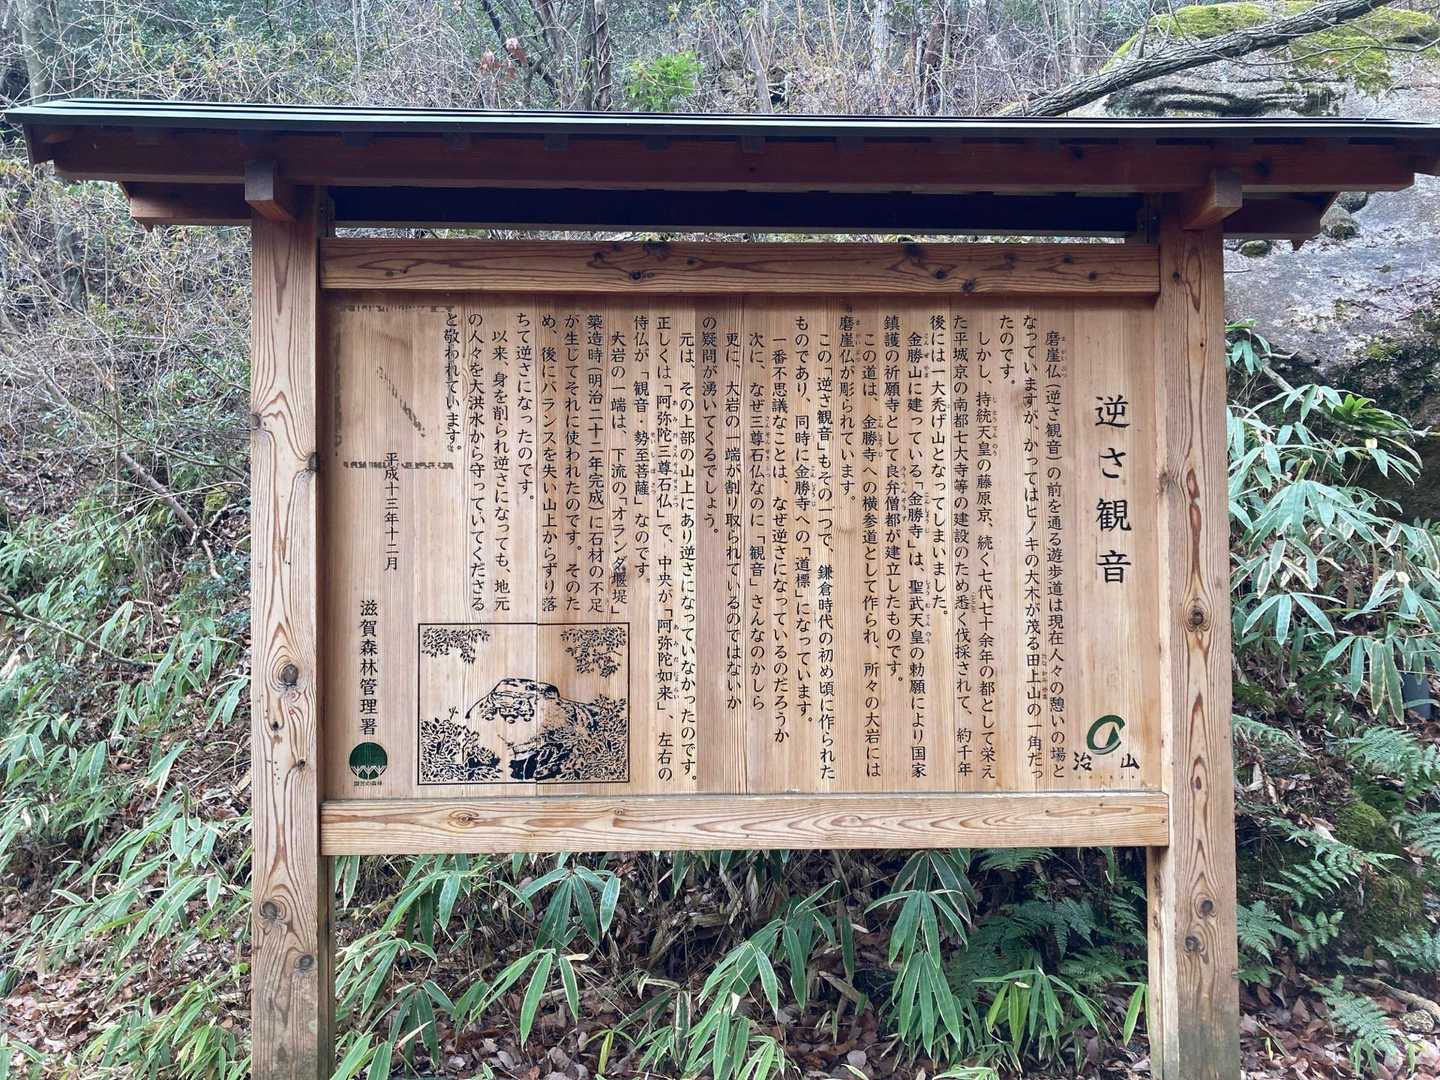 逆さ観音
磨崖仏(逆さ観音)の前を通る遊歩道は現在人々の憩いの場と
なっていますが、かつてはヒノキの大木が茂る田上山の一角だっ
たのです。
しかし、持統天皇の藤原京、続く七代七十余年の都として栄え
た平城京の南都七大寺等の建設のため悉く伐採されて、約千年
後には一大禿げ山となってしまいました。
金勝山に建っている「金勝寺」は、聖武天皇の勅願により国家
鎮護の祈願寺として良弁僧都が建立したものです。
この道は、金勝寺への横参道として作られ、所々の大岩には
磨崖仏が彫られています。
この「逆さ観音」もその一つで、鎌倉時代の初め頃に作られた
ものであり、同時に金勝寺への「道標」になっています。
一番不思議なことは、なぜ逆さになっているのだろうか
次に、なぜ三尊石仏なのに「観音」さんなのかしら
更に、大岩の一端が割り取られているのではないか
の疑問が湧いてくるでしょう。
元は、その上部の山上にあり逆さになっていなかったのです。
正しくは「阿弥陀三尊石仏」で、中央が「阿弥陀如来」、左右の
侍仏が「観音・勢至菩薩」なのです。
大岩の一端は、下流の「オランダ堰堤」
築造時(明治二十二年完成)に石材の不足
が生じてそれに使われたのです。そのた
め、後にバランスを失い山上からずり落
ちて逆さになったのです。
以来、身を削られ逆さになっても、地元
の人々を大洪水から守っていてくださる
と敬われています。
平成十三年十二月
滋賀森林管理署
治山
国民の森林